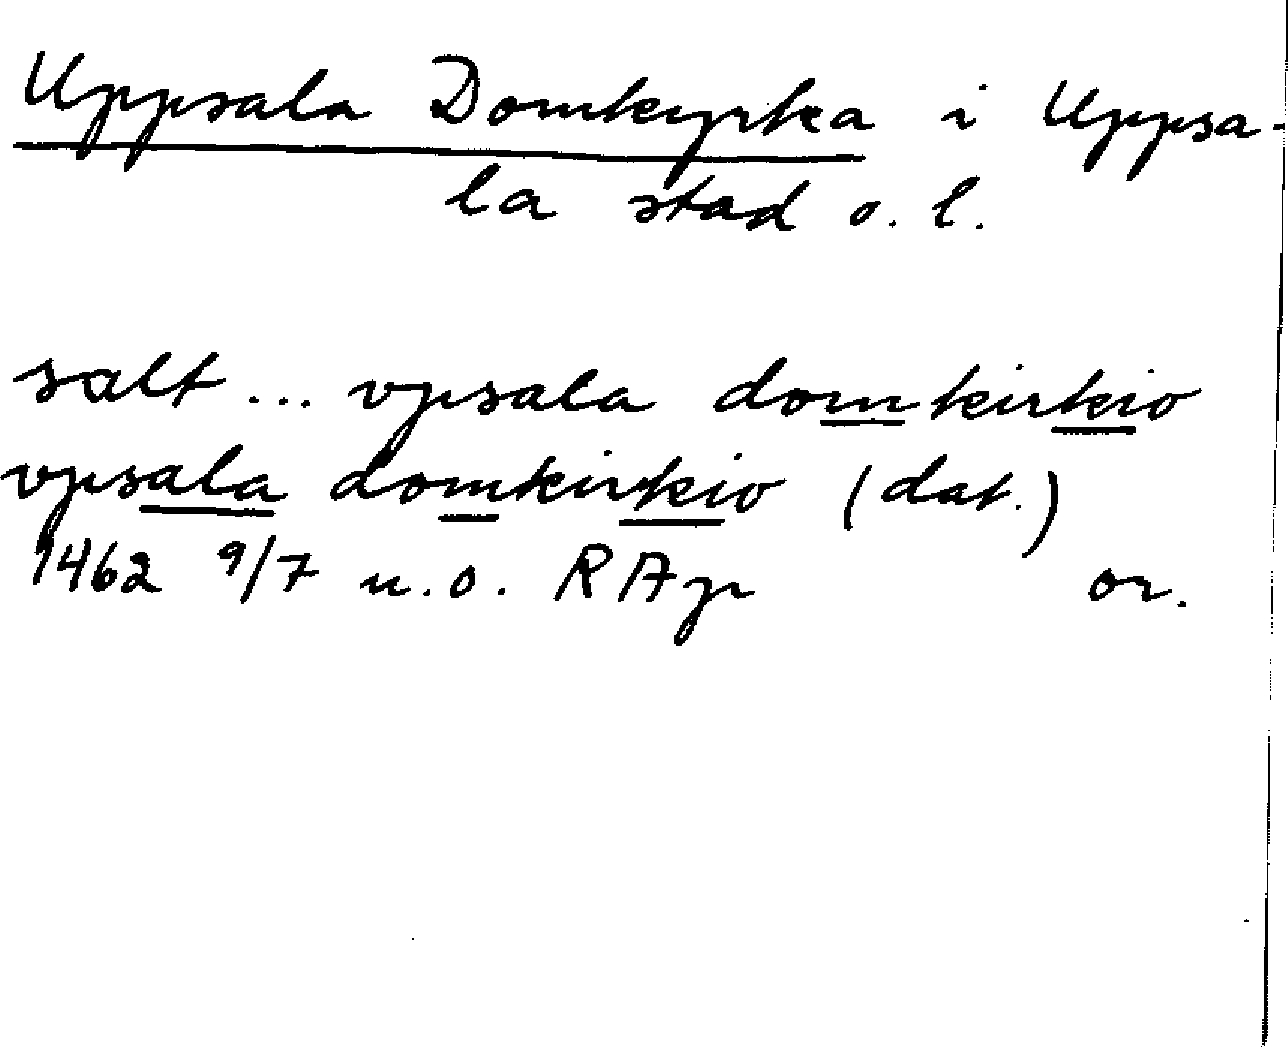 Uppsala Domkyrka i Uppsa-
la stad o. l.
salt ... vpsala domkirkio
vpsala domkirkio (dat.)
1462 9/7 u.o. RAp or.